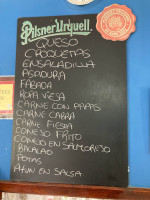 Pilsner Urquell
QUESO
CROQUETAS
ENSALADILLA
ASADURA
FABADA
ROPA VIEJA
CARNE CON PAPAS
CARNE CABRA
CARNE FIESTA
CONEJO FRITO
CONEJO EN SALMOREJO
BACALAO
POTAS
ATUN EN SALSA